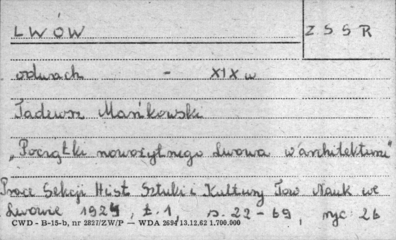 LWÓW
ZSSR
odwach - XIX w
Tadeusz Mańkowski
„Początki nowożytnego Lwowa w architekturze"
Prace Sekcji Hist. Sztuki i Kultury Tow. Nauk. we
Lwowie 1924, t. 1, s. 22-69, ryc. 26
CWD - B-15-b, nr 2827/ZW/P — WDA 2694 13.12.62 1.700.000